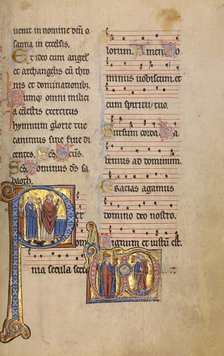 uenit in nomine dnı o
sanna in excelsis.
Et ideo cum angelis
et archangelis cū thro
nis et dominationibꝫ
cumqꝫ omni milicia
celestis exercitus
hymnum glorie tue
canimus sine fine di
centes. Scs Scs
Scs Dominus ds sa
baoth.
P
nia secula secu
lorum. Amen. Do
minus uobiscum. et
cum spiritu tuo.
Sursum corda.
bemus ad dominum.
Gracias agamus
domino deo nostro.
Dignum et iustū est.